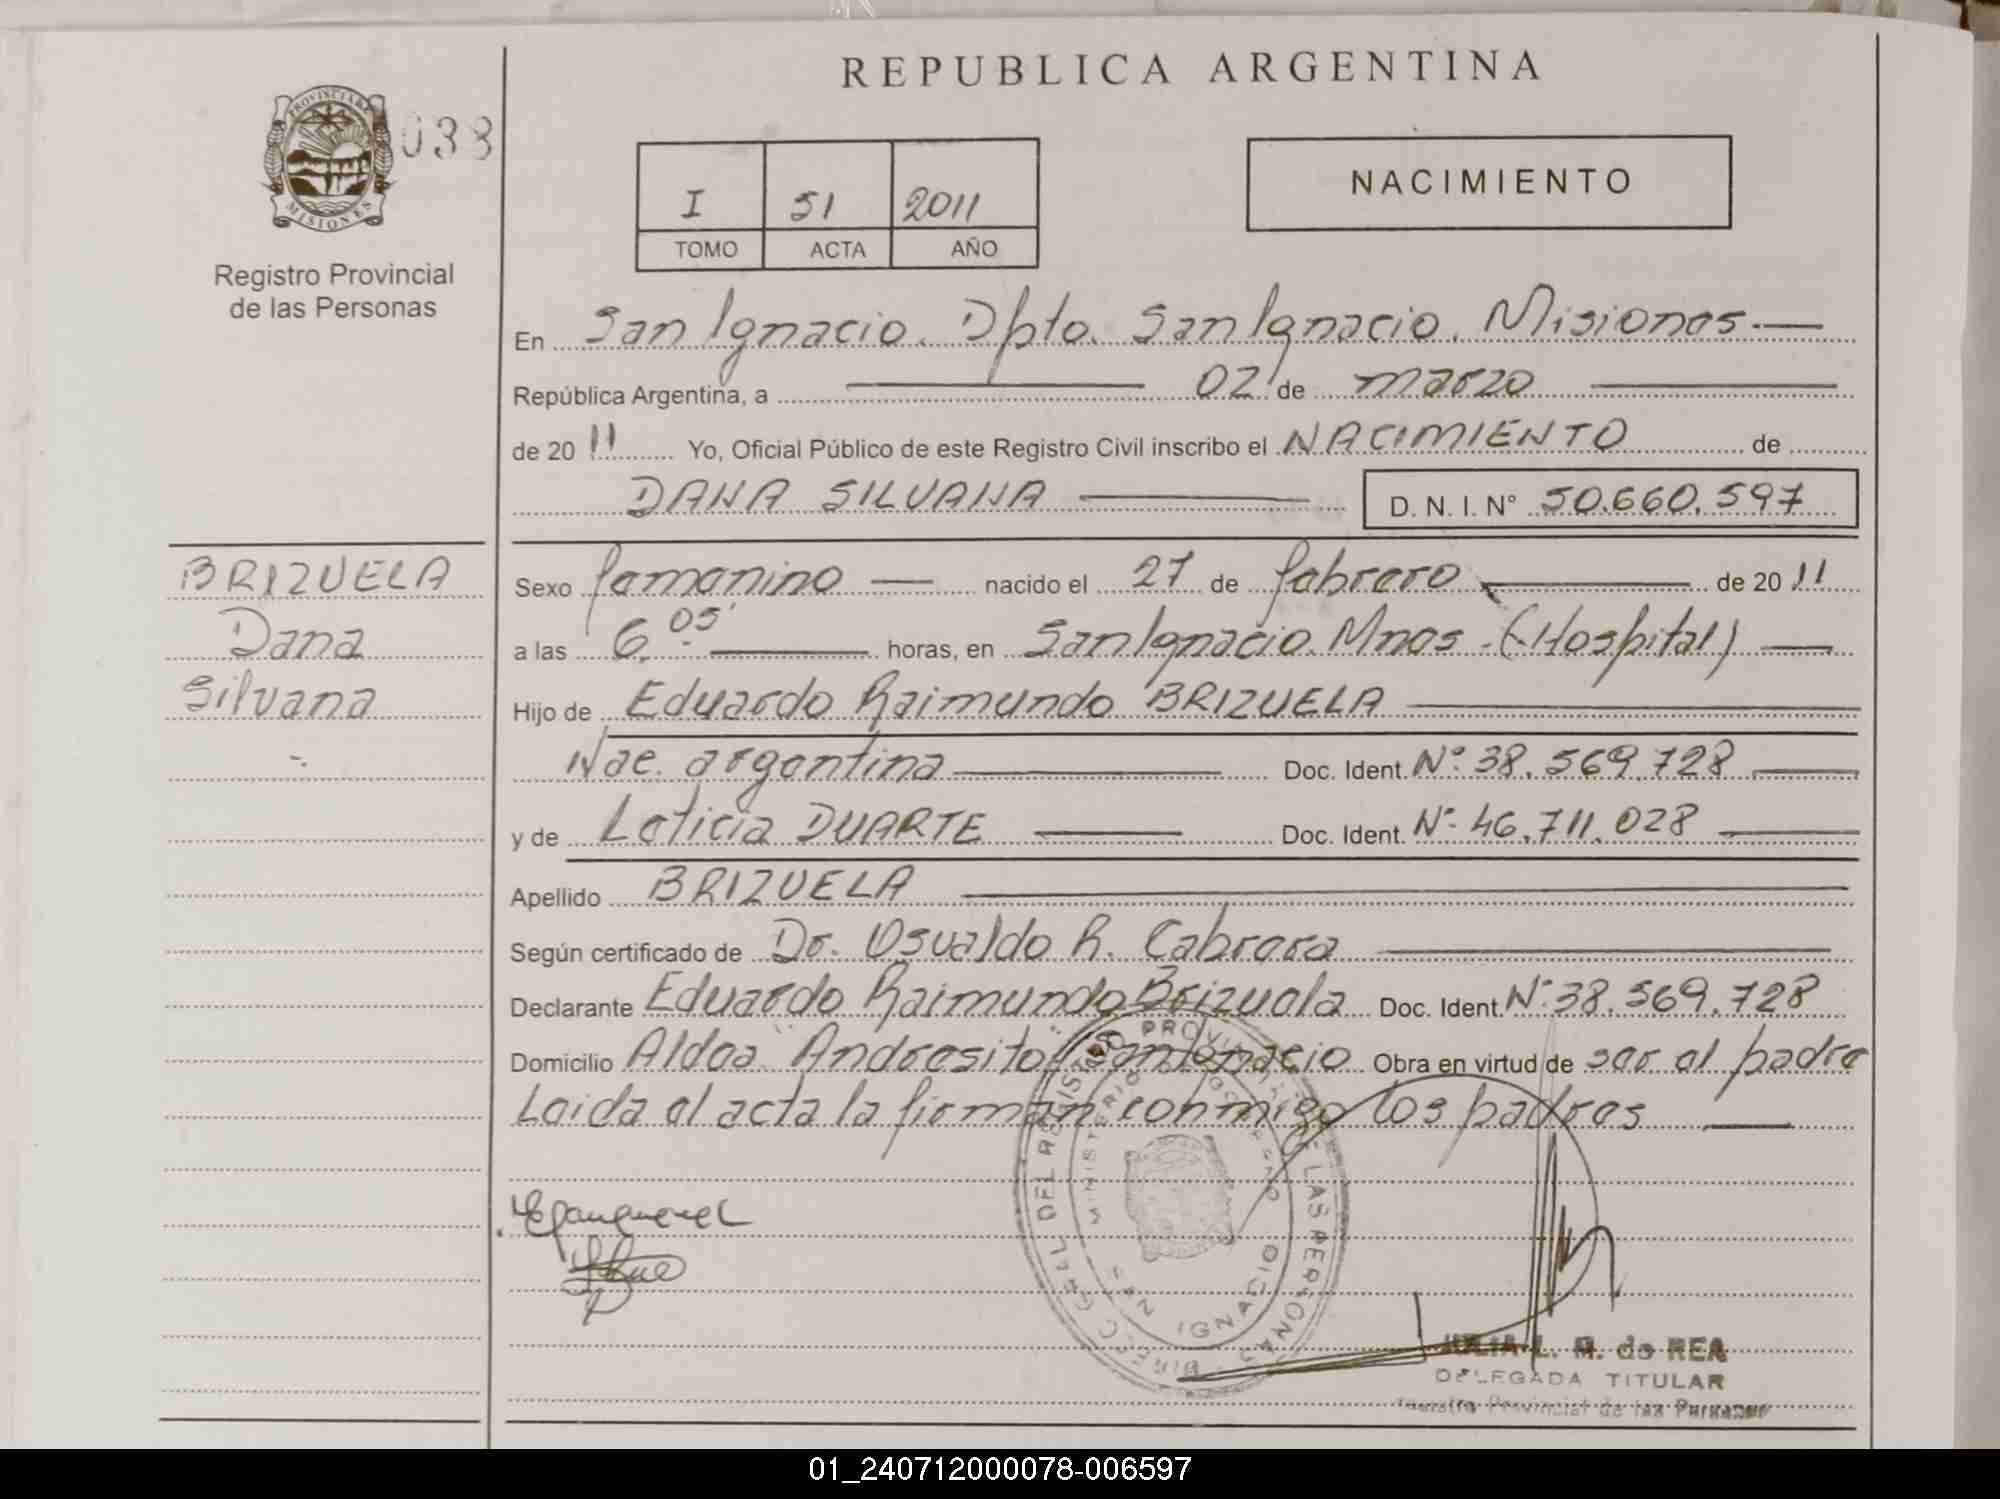 REPUBLICA ARGENTINA
PROVINCIA DE
MISIONES
038
Registro Provincial
de las Personas
I 51 2011
TOMO ACTA AÑO
NACIMIENTO
En San Ignacio. Dpto. San Ignacio. Misiones.
República Argentina, a 02 de marzo
de 20 11 Yo, Oficial Público de este Registro Civil inscribo el NACIMIENTO de
DANA SILVANA D. N. I. N° 50.660.597
BRIZUELA
Dana
Silvana
Sexo femenino nacido el 27 de febrero de 20 11
a las 6.05' horas, en San Ignacio. Mnes. (Hospital)
Hijo de Eduardo Raimundo BRIZUELA
Nac. argentina Doc. Ident. N° 38.569.728
y de Leticia DUARTE Doc. Ident. N° 46.711.028
Apellido BRIZUELA
Según certificado de Dr. Osvaldo R. Cabrera
Declarante Eduardo Raimundo Brizuela Doc. Ident. N° 38.569.728
Domicilio Aldea Andresito San Ignacio Obra en virtud de ser el padre
Leida el acta la firman conmigo los padres
DIRECC. GRAL. DEL REGISTRO PROVINCIAL DE LAS PERSONAS
MINISTERIO DE GOBIERNO
SAN IGNACIO
JULIA L. M. de REA
DELEGADA TITULAR
Registro Provincial de las Personas
01_240712000078-006597